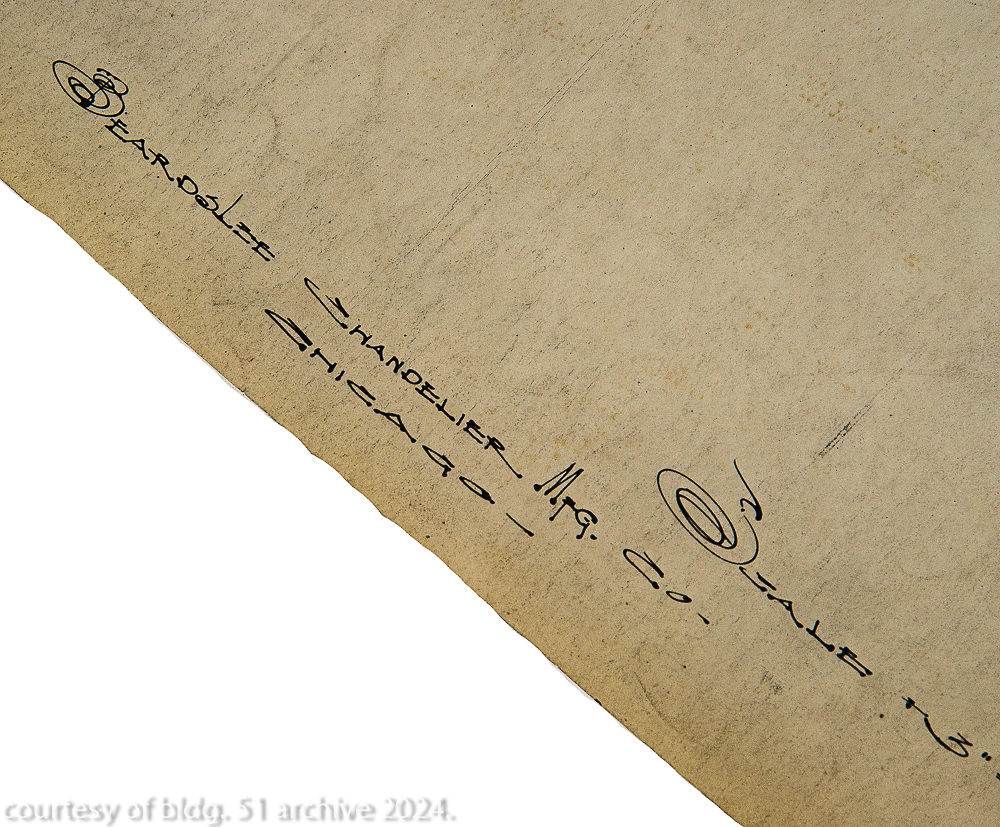 BEARDSLEE CHANDELIER MFG. CO-
CHICAGO -
SCALE
courtesy of bldg. 51 archive 2024.